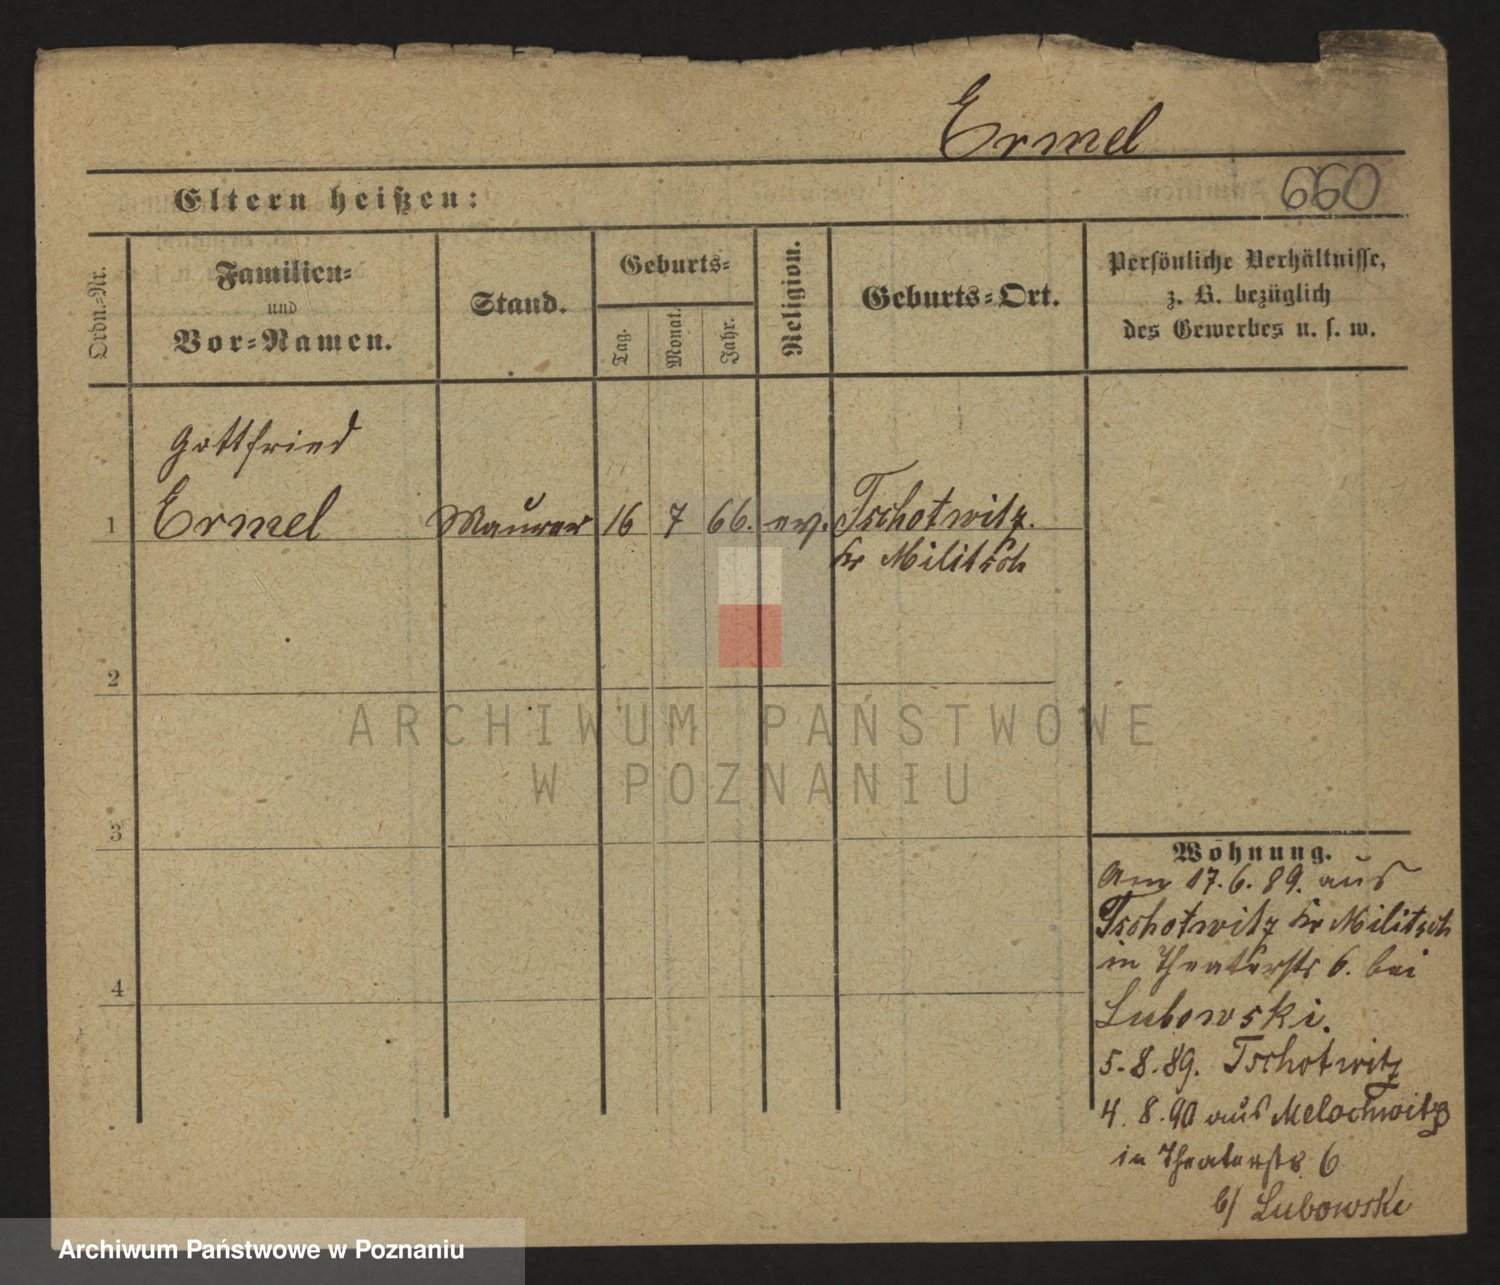 Ermel
660
Eltern heißen:
Ordn.-Nr.
Familien-
und
Vor-Namen.
Stand.
Geburts-
Tag.
Monat.
Jahr.
Religion.
Geburts-Ort.
Persönliche Verhältnisse,
z. B. bezüglich
des Gewerbes u. s. w.
Gottfried
1 Ermel Maurer 16 7 66. ev. Tschotwitz.
Kr Militsch
2
3
4
Wohnung.
Am 17.6.89. aus
Tschotwitz Kr Militsch
in Theaterstr 6. bei
Lubowski.
5.8.89. Tschotwitz
4.8.90 aus Melochwitz
in Theaterstr 6
b/ Lubowski
ARCHIWUM PAŃSTWOWE
W POZNANIU
Archiwum Państwowe w Poznaniu